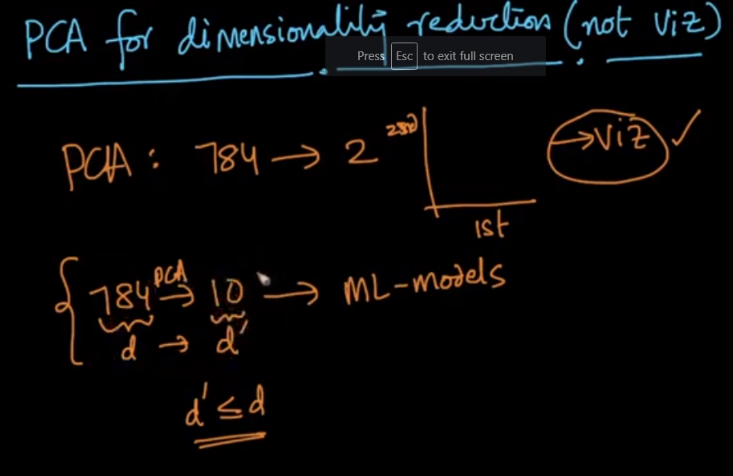 PCA for dimensionality reduction (not viz)
Press Esc to exit full screen
PCA : 784 → 2
2nd
1st
→ viz ✓
784 PCA → 10 → ML-models
d → d'
d' ≤ d